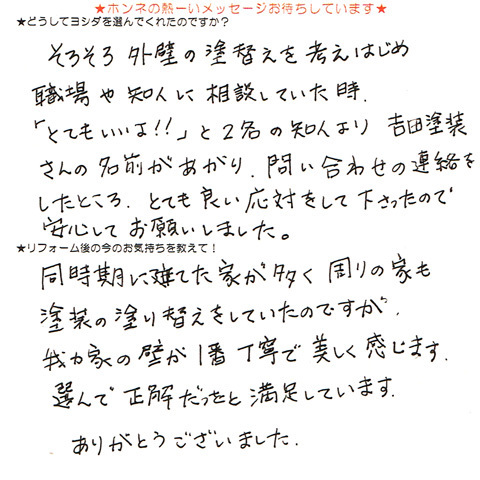 ★ホンネの熱ーいメッセージお待ちしています★
★どうしてヨシダを選んでくれたのですか？
そろそろ外壁の塗替えを考えはじめ
職場や知人に相談していた時、
「とてもいいよ!!」と2名の知人より吉田塗装
さんの名前があがり、問い合わせの連絡を
したところ、とても良い応対をして下さったので
安心してお願いしました。
★リフォーム後の今のお気持ちを教えて！
同時期に建てた家が多く周りの家も
塗装の塗り替えをしていたのですが、
我が家の壁が1番丁寧で美しく感じます。
選んで正解だったと満足しています。
ありがとうございました。